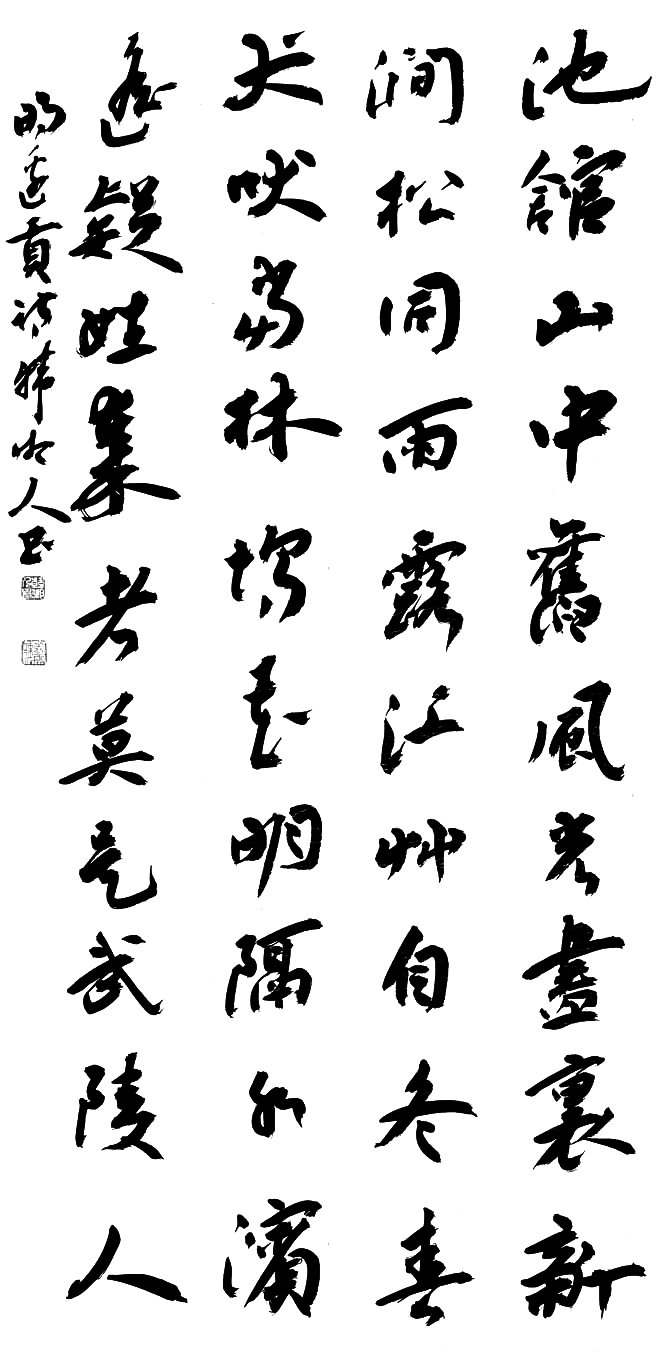 池館山中舊風光畫裏新
澗松同雨露江艸自冬春
犬吠當林塢花明隔水濱
遙疑姓秦者莫是武陵人
明邊貢詩人書